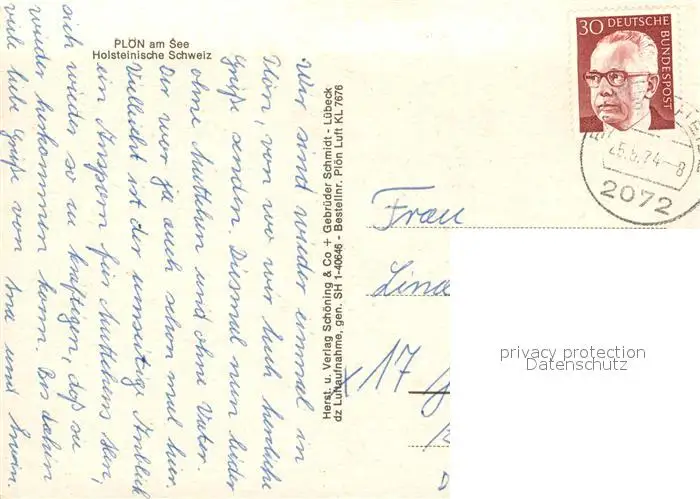 PLÖN am See
Holsteinische Schweiz
Wir sind wieder einmal in
Plön, von wo wir hoch herzliche
Grüße senden. Diesmal nun leider
ohne Muttchen und ohne Vater.
Der war ja auch schon mal hier.
Vielleicht ist der umseitige Anblick
ein Ansporn für Muttchens
sich wieder so zu kräftigen, daß sie
wieder herkommen kann. Bis dahin
viele liebe Grüße von und Erwin.
Herst. u. Verlag Schöning & Co + Gebrüder Schmidt - Lübeck
dz Luftaufnahme, gen. SH 1-40646 - Bestellnr. Plön Luft KL 7676
30 DEUTSCHE BUNDESPOST
74-8
2072
Frau
17
privacy protection
Datenschutz